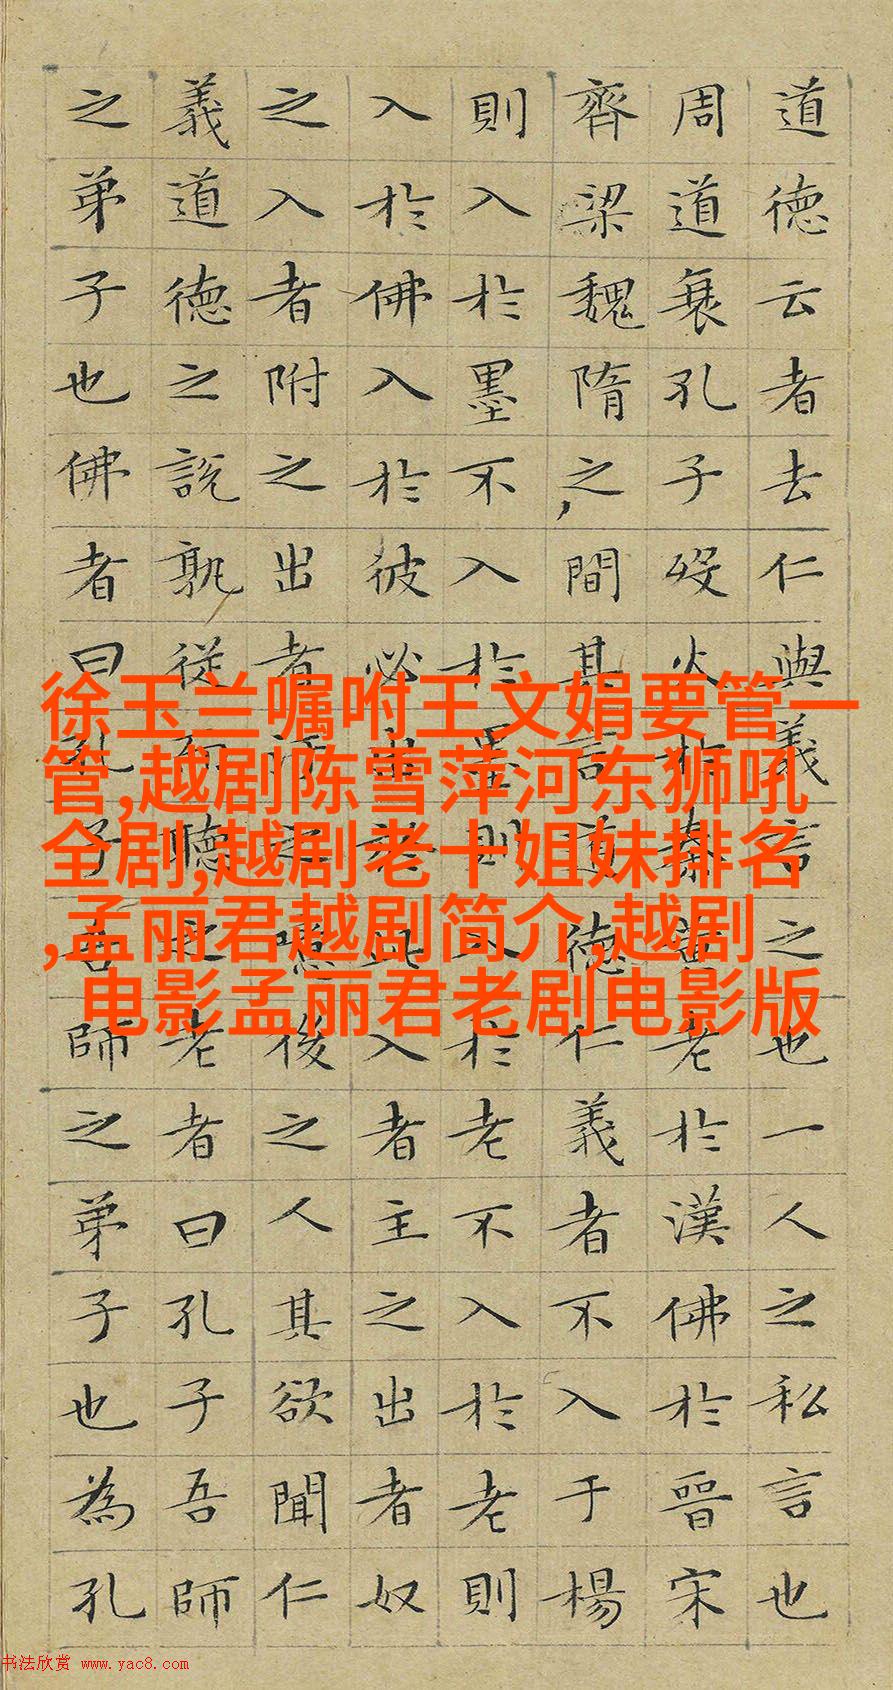 道德云者去仁與義言之也一人之私言也
周道衰孔子歿火於秦黃老於漢佛於晉宋
齊梁魏隋之間其言道德仁義者不入于楊
則入於墨不入於墨則入於老不入於老則
入於佛入於彼必出於此入者主之出者奴
之入者附之出者汙之噫後之人其欲聞仁
義道德之說孰從而聽之老者曰孔子吾師
之弟子也佛者曰孔子吾師之弟子也為孔
徐玉兰嘱咐王文娟要管一
管,越剧陈雪萍河东狮吼
全剧,越剧老十姐妹排名
,孟丽君越剧简介,越剧
电影孟丽君老剧电影版
书法欣赏 www.yac8.com